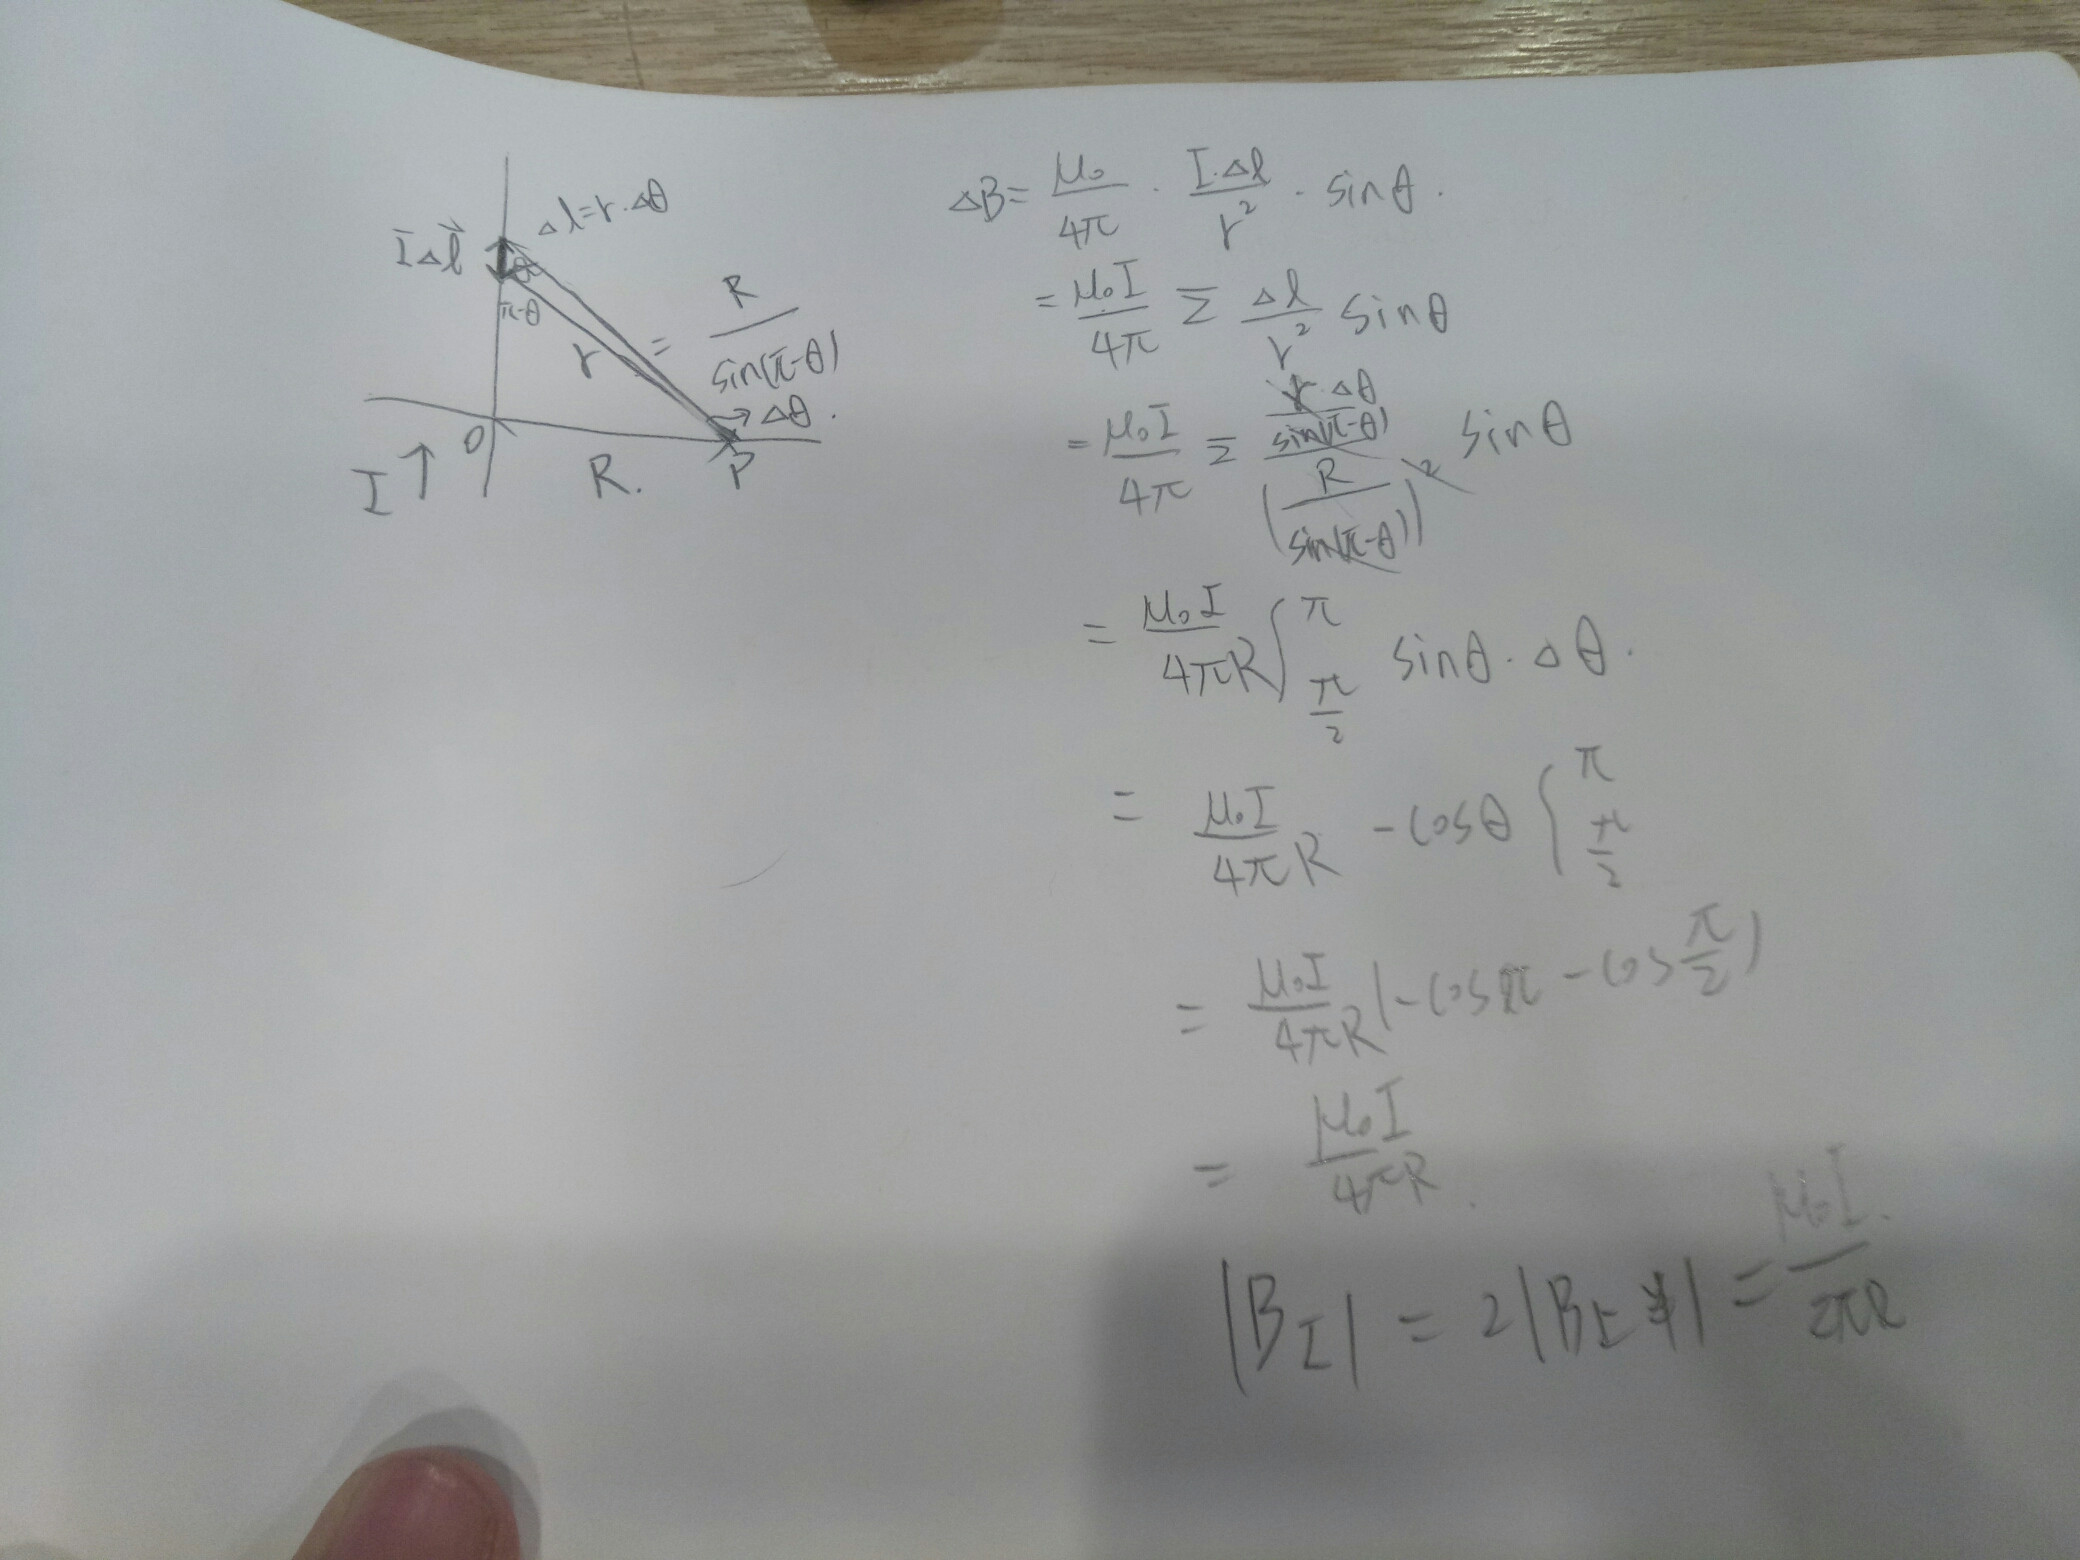 Δl=r·Δθ
IΔl⃗
θ
π-θ
r = R/sin(π-θ)
Δθ.
O
I↑ R. P
ΔB= μ₀/4π · I·Δl/r² · sinθ.
= μ₀I/4π Σ Δl/r² sinθ
= μ₀I/4π Σ (r·Δθ/sin(π-θ))/(R/sin(π-θ))² sinθ
= μ₀I/4πR ∫_{π/2}^{π} sinθ·Δθ.
= μ₀I/4πR -cosθ ∫_{π/2}^{π}
= μ₀I/4πR (-cosπ - cos π/2)
= μ₀I/4πR.
|B_I| = 2|B_上半| = μ₀I./2πR